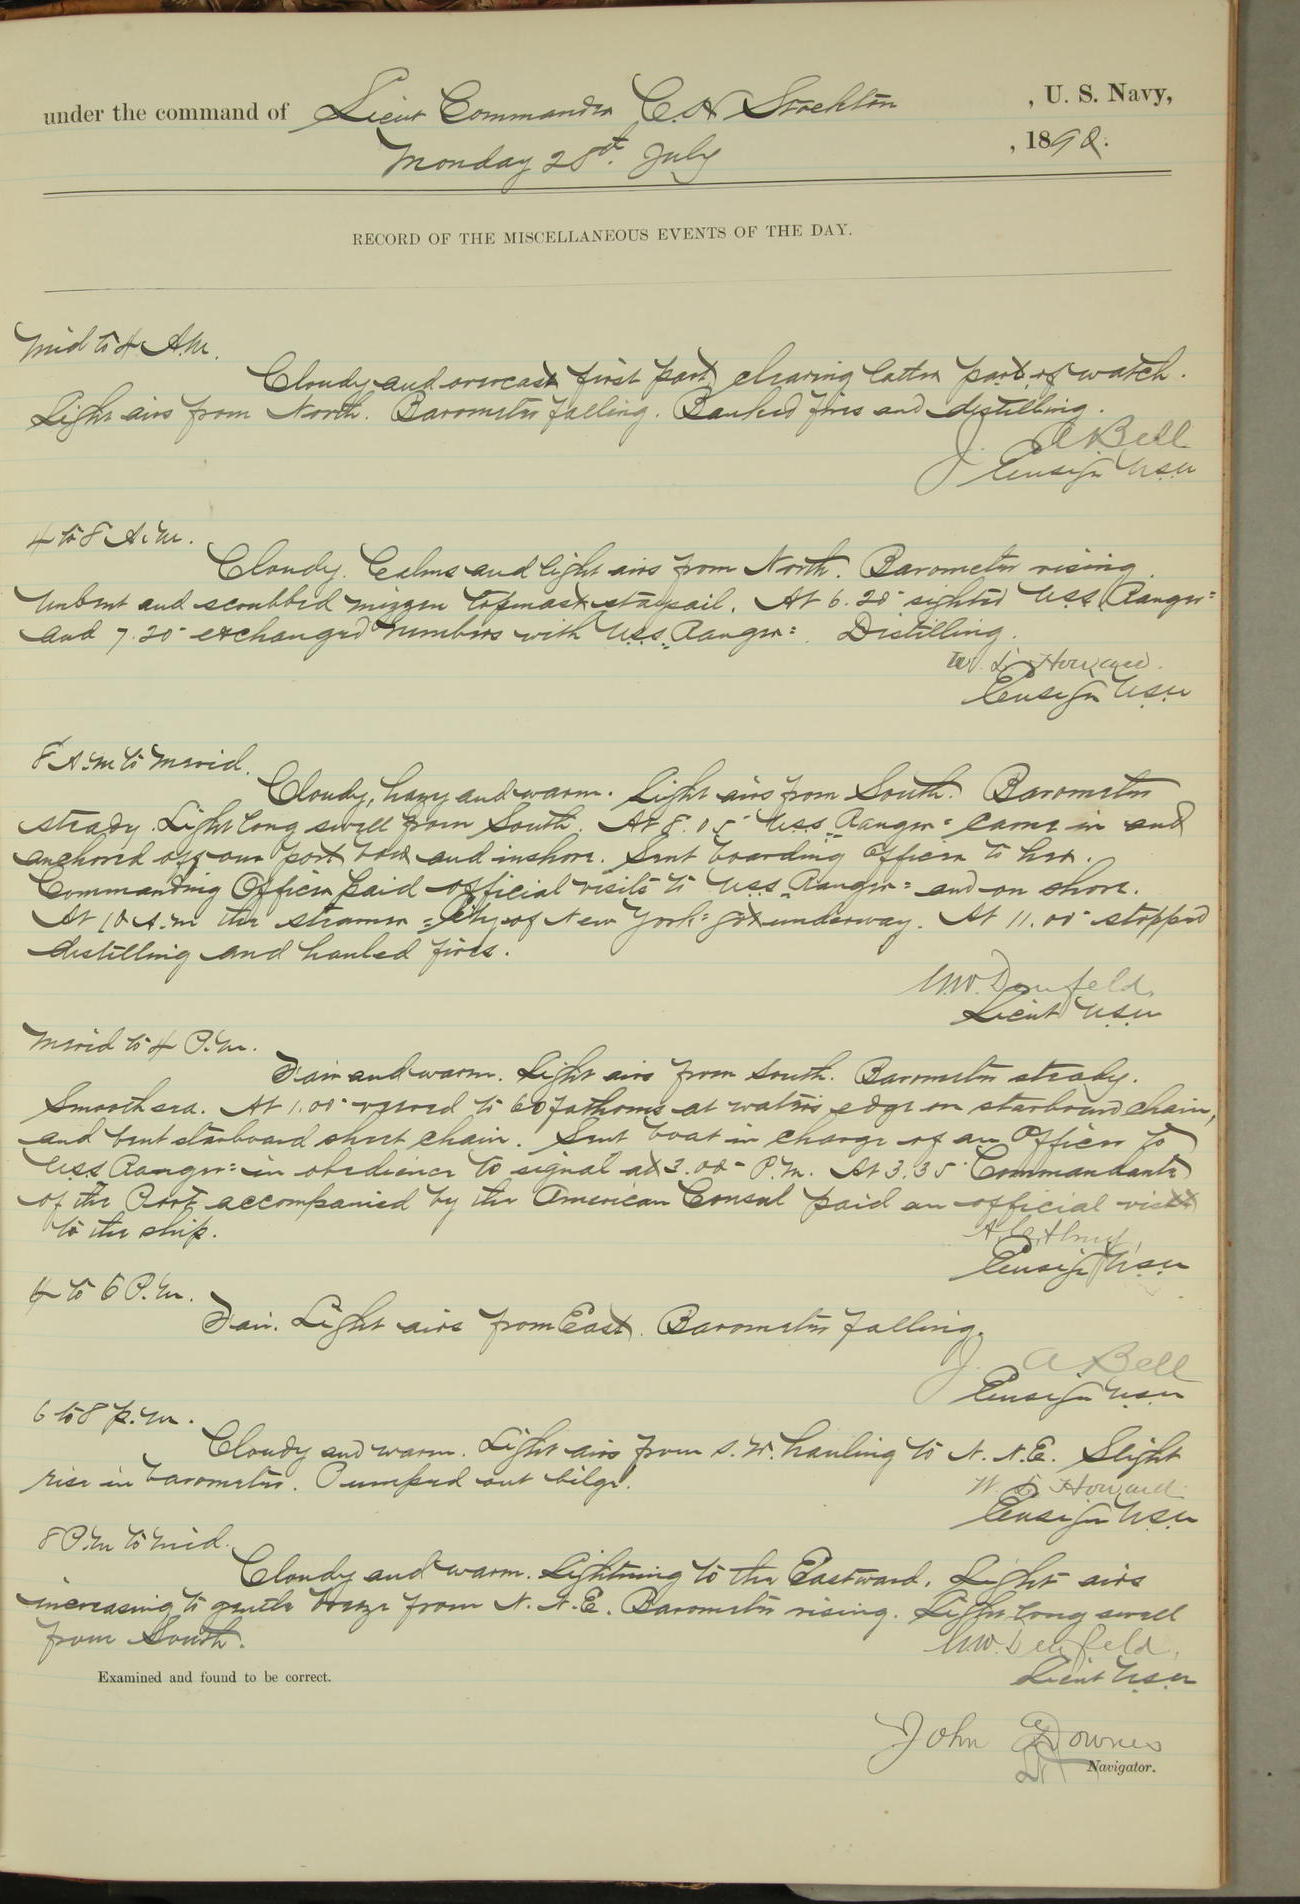 under the command of Lieut Commander C. H. Stockton , U. S. Navy,
Monday 28th July , 1890.
RECORD OF THE MISCELLANEOUS EVENTS OF THE DAY.
Mid to 4 A.M.
Cloudy and overcast first part clearing latter part of watch.
Light airs from North. Barometer falling. Banked fires and distilling.
J. A Bell
Ensign U.S.N
4 to 8 A.M.
Cloudy. Calms and light airs from North. Barometer rising.
Unbent and scrubbed mizzen topmast staysail. At 6.20 sighted U.S.S. "Ranger"
and 7.20 exchanged numbers with U.S.S. "Ranger". Distilling.
W. L. Howard.
Ensign U.S.N
8 A.M. to Merid.
Cloudy, hazy and warm. Light airs from South. Barometer
steady. Light long swell from South. At 8.05 U.S.S. "Ranger" came in and
anchored off our port bow and inshore. Sent boarding officer to her.
Commanding Officer paid official visits to U.S.S. "Ranger" and on shore.
At 10 A.M. the steamer "City of New York" got underway. At 11.00 stopped
distilling and hauled fires.
Denfeld,
Lieut U.S.N
Merid to 4 P.M.
Fair and warm. Light airs from South. Barometer steady.
Smooth sea. At 1.00 veered to 60 fathoms at water's edge on starboard chain,
and bent starboard sheet chain. Sent boat in charge of an Officer to
U.S.S. Ranger" in obedience to signal at 3.00 P.M. At 3.35 Commandante
of the Port accompanied by the American Consul paid an official visit
to the ship.
Ensign U.S.N
4 to 6 P.M.
Fair. Light airs from East. Barometer falling.
J. A. Bell
Ensign U.S.N
6 to 8 P.M.
Cloudy and warm. Light airs from S.W. hauling to N.N.E. Slight
rise in barometer. Pumped out bilge.
W. L. Howard
Ensign U.S.N
8 P.M. to Mid.
Cloudy and warm. Lightning to the Eastward. Light airs
increasing to gentle breeze from N.N.E. Barometer rising. Light long swell
from South.
Denfeld,
Lieut U.S.N
Examined and found to be correct.
John Downes
Lt Navigator.